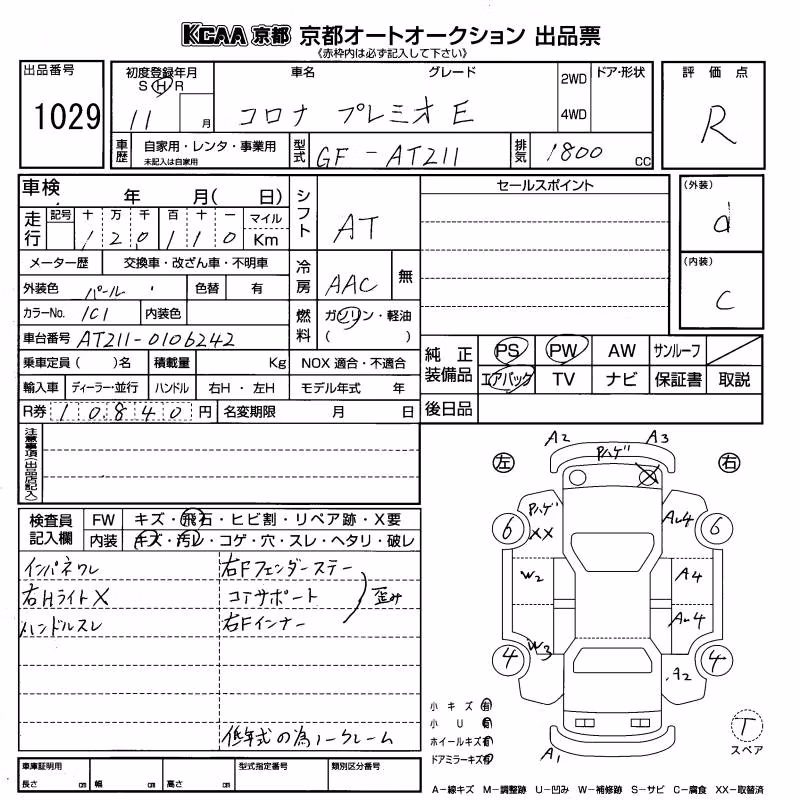 KCAA 京都 京都オートオークション 出品票
《赤枠内は必ず記入して下さい》
出品番号
1029
初度登録年月
S H R
11 月
車名 グレード
コロナ プレミオ E
2WD
4WD
ドア・形状
評価点
R
車歴 自家用・レンタ・事業用
未記入は自家用
型式 GF-AT211
排気 1800 CC
車検 年 月( 日)
走行 記号 十 万 千 百 十 一 マイル
1 2 0 1 1 0 Km
シフト AT
セールスポイント
(外装)
d
(内装)
C
メーター歴 交換車・改ざん車・不明車
冷房 AAC 無
外装色 パール 色替 有
カラーNo. 1C1 内装色
燃料 ガソリン・軽油
( )
車台番号 AT211-0106242
乗車定員( )名 積載量 Kg NOX 適合・不適合
輸入車 ディーラー・並行 ハンドル 右H・左H モデル年式 年
R券 10,840 円 名変期限 月 日
純正装備品 PS PW AW サンルーフ
エアバック TV ナビ 保証書 取説
後日品
注意事項(出品店記入)
検査員記入欄 FW キズ・飛石・ヒビ割・リペア跡・X要
内装 キズ・汚レ・コゲ・穴・スレ・ヘタリ・破レ
インパネワレ 右Fフェンダーステー
右HライトX コアサポート 歪み
ハンドルスレ 右Fインナー
低年式の為ノークレーム
左 右
A2 A3
Pハゲ
X
Pハゲ
XX
6 6
AU4
W2 A4
AU4
W3
4 4
A2
A1
小キズ 有
小U 有
ホイールキズ 有
ドアミラーキズ 有
T
スペア
車庫証明用 型式指定番号 類別区分番号
長さ cm 幅 cm 高さ cm
A-線キズ M-調整跡 U-凹み W-補修跡 S-サビ C-腐食 XX-取替済